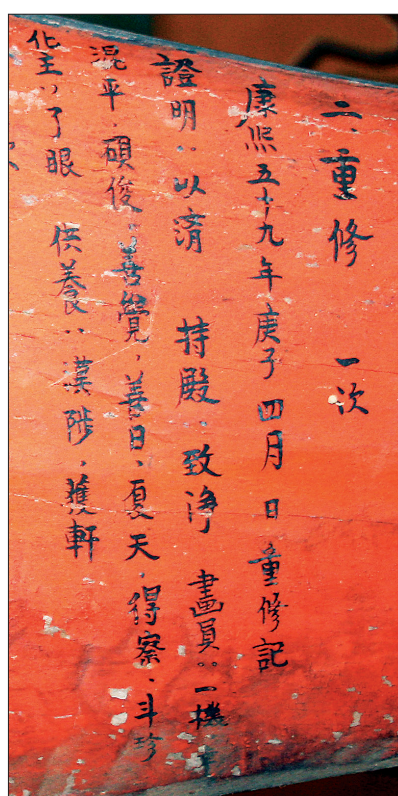 二、重修 一次
康熙五十九年庚子四月 日 重修記
證明:以濟 持殿、致淨 畫員:一機
浞平、碩俊、善覺、善日、夏天、得察、斗珍
化主、了眼 供養:漢陟、護軒